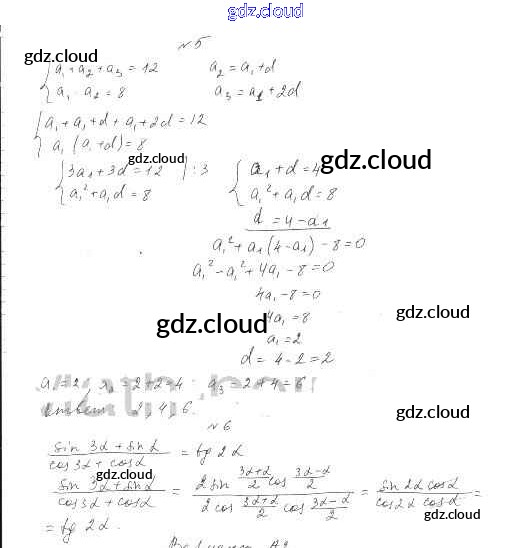 gdz.cloud
№5
gdz.cloud
{a₁+a₂+a₃=12   a₂=a₁+d
a₁·a₂=8   a₃=a₁+2d
{a₁+a₁+d+a₁+2d=12
a₁(a₁+d)=8
gdz.cloud
gdz.cloud
{3a₁+3d=12 |:3   {a₁+d=4
a₁²+a₁d=8   a₁²+a₁d=8
d=4-a₁
a₁²+a₁(4-a₁)-8=0
a₁²-a₁²+4a₁-8=0
4a₁-8=0
gdz.cloud
4a₁=8
gdz.cloud
a₁=2
d=4-2=2
a₁=2, a₂=2+2=4; a₃=2+4=6
Ответ: 2, 4, 6.
№6
(sin 3α + sin α)/(cos 3α + cos α) = tg 2α
gdz.cloud
(sin 3α + sin α)/(cos 3α + cos α) = (2 sin (3α+α)/2 cos (3α-α)/2)/(2 cos (3α+α)/2 cos (3α-α)/2) = (sin 2α cos α)/(cos 2α cos α) =
gdz.cloud
= tg 2α.